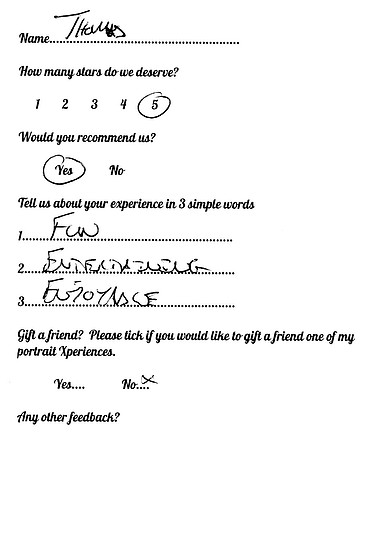 Name....Thomas
How many stars do we deserve?
1 2 3 4 5
Would you recommend us?
Yes No
Tell us about your experience in 3 simple words
1........FUN
2........ENTERTAINING
3........ENJOYABLE
Gift a friend? Please tick if you would like to gift a friend one of my
portrait Xperiences.
Yes.... No....x
Any other feedback?